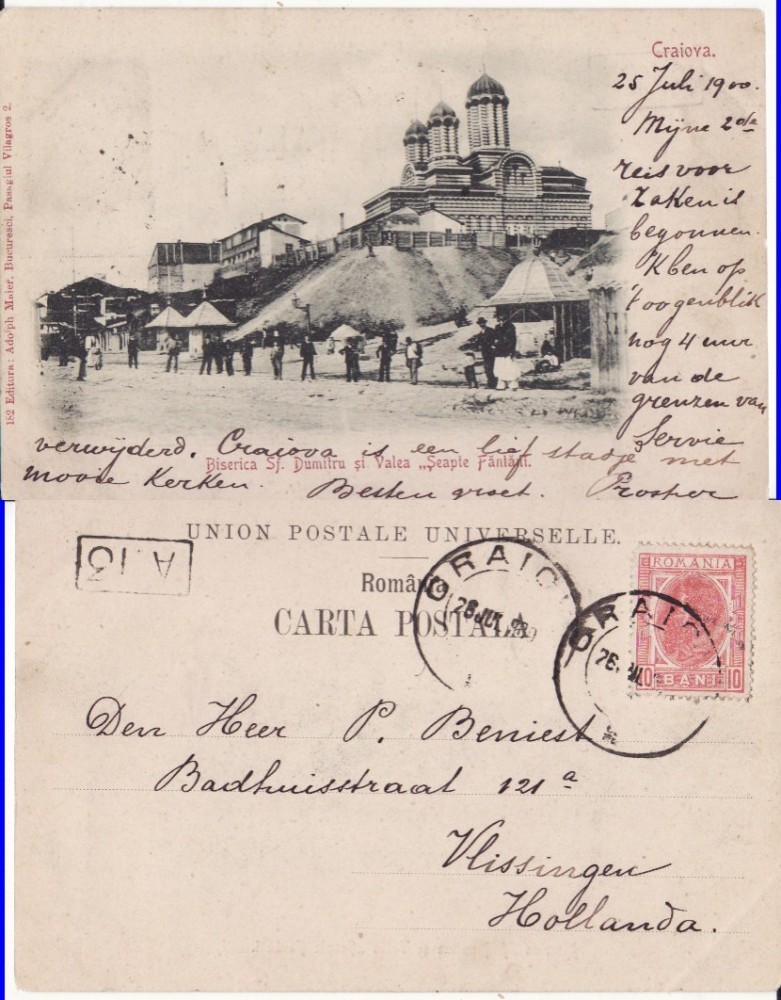 Craiova.
25 Juli 1900.
Mijne 2de
reis voor
zaken is
begonnen.
'K ben op
't oogenblik
nog 4 uur
van de
grenzen van
Servie
verwijderd. Craiova is een lief stadje met
Biserica Sf. Dumitru și Valea „Șeapte Fântâni.
mooie Kerken. Besten groet. Prosper
182 Editura: Adolph Maier, Bucuresci, Pasagiul Vilagros 2.
UNION POSTALE UNIVERSELLE.
A.13
România
CARTA POSTALA
CRAIO
26 JUL
CRAIO
26 JUL
ROMANIA
10 BANI 10
Den Heer P. Beniest
Badhuisstraat 121a
Vlissingen
Hollanda.